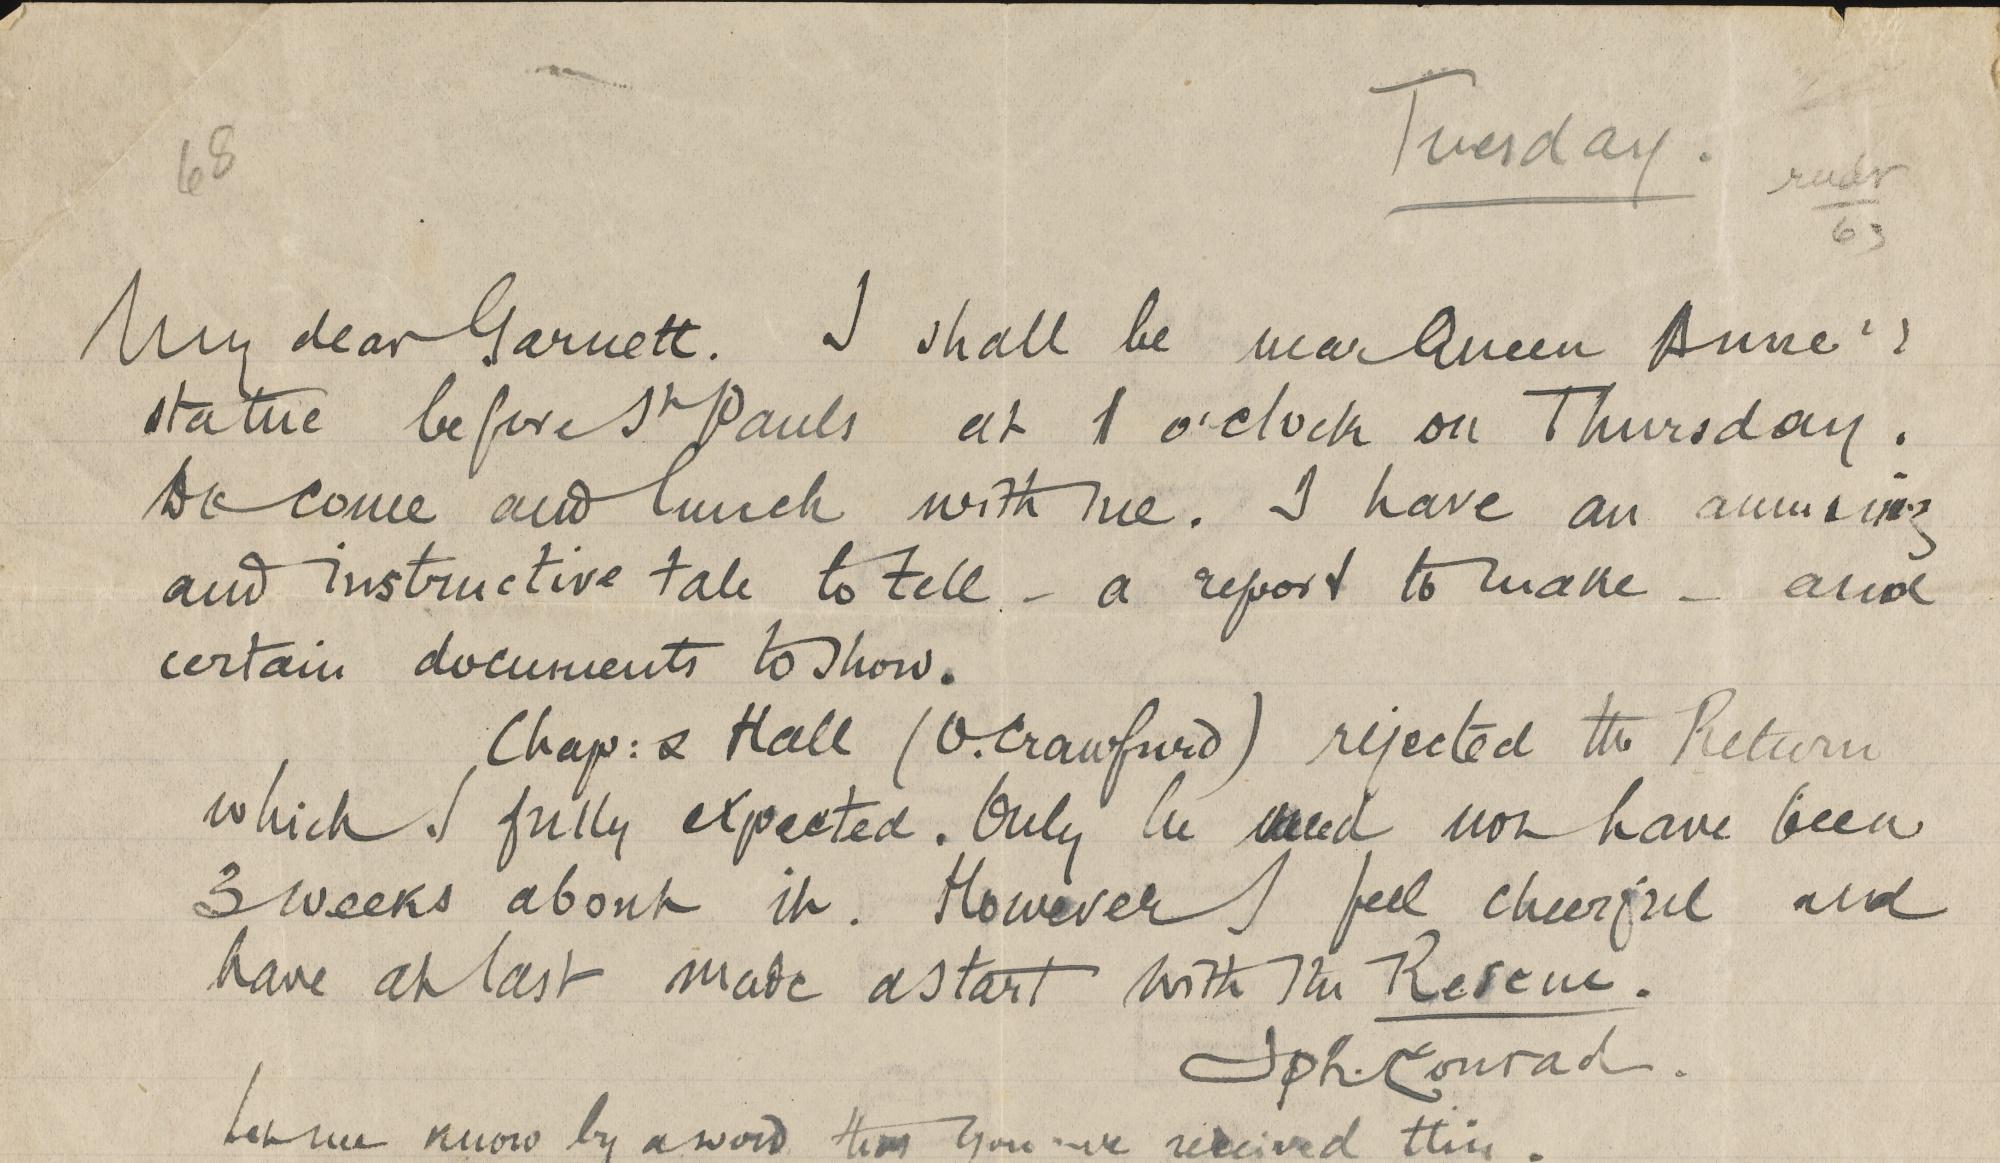 68
Tuesday.
63
My dear Garnett. I shall be near Queen Anne's
statue before St Pauls at 1 o'clock on Thursday.
Do come and lunch with me. I have an amusing
and instructive tale to tell – a report to make – and
certain documents to show.
Chap: & Hall (O. Crawfurd) rejected the Return
which I fully expected. Only he need not have been
3 weeks about it. However I feel cheerful and
have at last made a start with the Rescue.
Jph. Conrad.
Let me know by a word that you have received this.